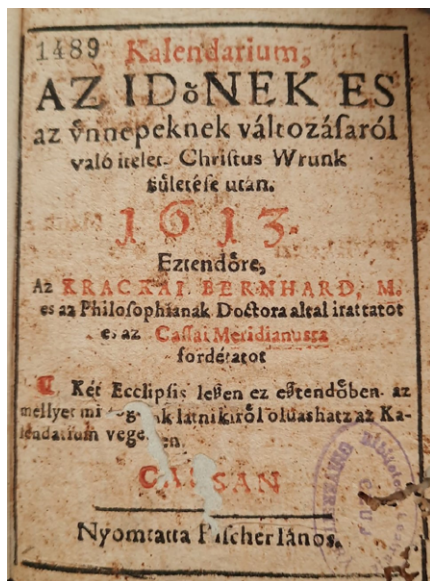 1489 Kalendarium,
AZ IDoͤNEK ES
az vͤnnepeknek változáſaról
való itelet Chriſtus Wrunk
ſzületéſe után.
1613.
Eztendoͤre,
Az KRACKAI BERNHARD, M.
es az Philoſophianak Doctora altal irattatot
es az Caſſai Meridianuſra
fordétatot
Két Ecclipſis leſzen ez eſztendoͤben. az
mellyet mi nk latni kiroͤl oluashatz az Ka-
lendarium vege.
CASSAN
Nyomtatta Fiſcher Iános.